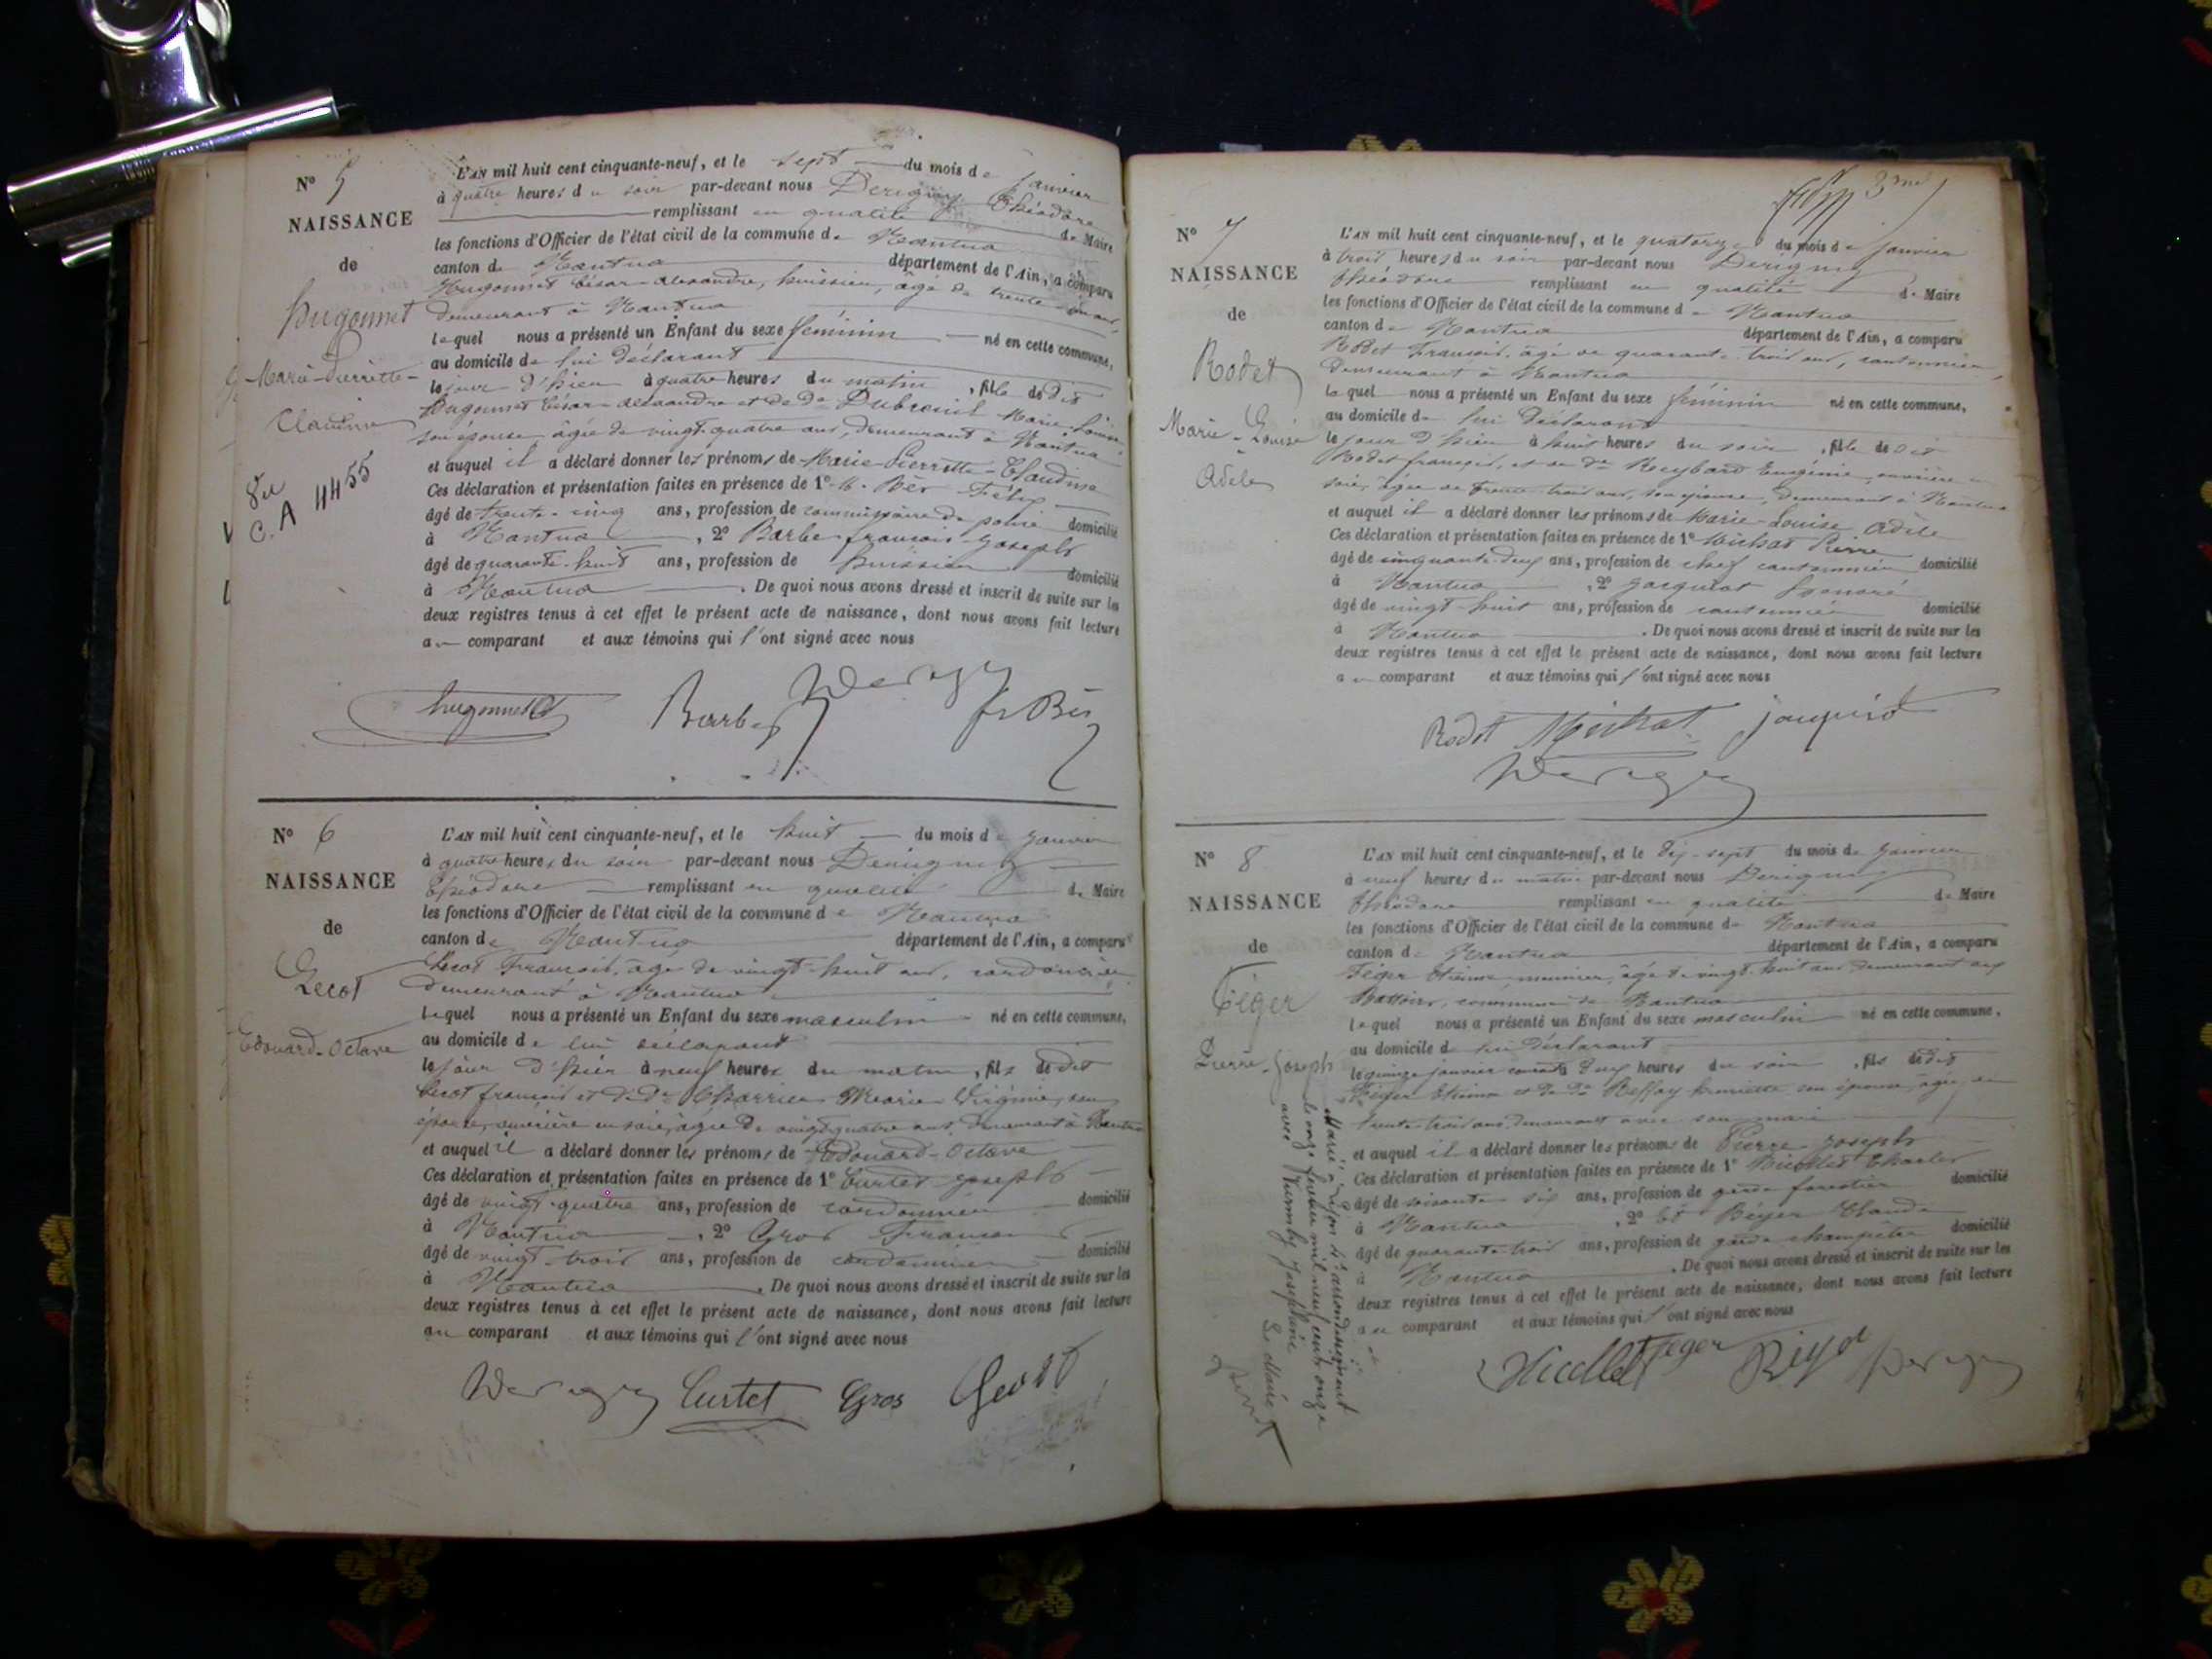 N° 5
NAISSANCE
de
Hugonnet
Marie-Pierrette-
Claudine
C.A 4455
L'AN mil huit cent cinquante-neuf, et le sept du mois de janvier
à quatre heures du soir par-devant nous Derigny Théodore
remplissant en qualité de Maire
les fonctions d'Officier de l'état civil de la commune de Nantua
canton de Nantua département de l'Ain, a comparu
Hugonnet César-alexandre, huissier, âgé de trente
demeurant à Nantua
lequel nous a présenté un Enfant du sexe féminin né en cette commune,
au domicile de lui déclarant
le jour d'hier à quatre heures du matin, fille de dit
Hugonnet César-alexandre et de De Dubreuil Marie-Louise
son épouse, âgée de vingt-quatre ans, demeurant à Nantua
et auquel il a déclaré donner les prénoms de Marie-Pierrette-Claudine
Ces déclaration et présentation faites en présence de 1° M. Bès Félix
âgé de trente-cinq ans, profession de commissaire de police domicilié
à Nantua, 2° Barbe françois-Joseph
âgé de quarante-huit ans, profession de huissier domicilié
à Nantua. De quoi nous avons dressé et inscrit de suite sur les
deux registres tenus à cet effet le présent acte de naissance, dont nous avons fait lecture
au comparant et aux témoins qui l'ont signé avec nous
hugonnet Barbe Derigny fx Bès
N° 6
NAISSANCE
de
Lecot
Edouard-Octave
L'AN mil huit cent cinquante-neuf, et le huit du mois de janvier
à quatre heures du soir par-devant nous Derigny
Théodore remplissant en qualité de Maire
les fonctions d'Officier de l'état civil de la commune de Nantua
canton de Nantua département de l'Ain, a comparu
Lecot François, âgé de vingt-huit ans, cordonnier
demeurant à Nantua
lequel nous a présenté un Enfant du sexe masculin né en cette commune,
au domicile de lui déclarant
le jour d'hier à neuf heures du matin, fils de dit
Lecot françois et de De Charrier Marie Virginie, son
épouse, ouvrière en soie, âgée de vingt-quatre ans, demeurant à Nantua
et auquel il a déclaré donner les prénoms de Edouard-Octave
Ces déclaration et présentation faites en présence de 1° Curtet Joseph
âgé de vingt-quatre ans, profession de cordonnier domicilié
à Nantua, 2° Gros
âgé de vingt-trois ans, profession de cordonnier domicilié
à Nantua. De quoi nous avons dressé et inscrit de suite sur les
deux registres tenus à cet effet le présent acte de naissance, dont nous avons fait lecture
au comparant et aux témoins qui l'ont signé avec nous
Derigny Curtet Gros
N° 7
NAISSANCE
de
Rodet
Marie-Louise
Adèle
L'AN mil huit cent cinquante-neuf, et le quatorze du mois de janvier
à trois heures du soir par-devant nous Derigny
Théodore remplissant en qualité de Maire
les fonctions d'Officier de l'état civil de la commune de Nantua
canton de Nantua département de l'Ain, a comparu
Rodet François, âgé de quarante-trois ans, cantonnier,
demeurant à Nantua
lequel nous a présenté un Enfant du sexe féminin né en cette commune,
au domicile de lui déclarant
le jour d'hier à huit heures du soir, fille de dit
Rodet françois, et de De Reybard Eugénie, ouvrière en
soie, âgée de trente-trois ans, son épouse, demeurant à Nantua
et auquel il a déclaré donner les prénoms de Marie-Louise Adèle
Ces déclaration et présentation faites en présence de 1° Michat Pierre
âgé de cinquante-deux ans, profession de chef cantonnier domicilié
à Nantua, 2° Jacquiot honoré
âgé de vingt-huit ans, profession de cantonnier domicilié
à Nantua. De quoi nous avons dressé et inscrit de suite sur les
deux registres tenus à cet effet le présent acte de naissance, dont nous avons fait lecture
au comparant et aux témoins qui l'ont signé avec nous
Rodet Michat
Derigny
N° 8
NAISSANCE
de
Féger
Pierre-Joseph
L'AN mil huit cent cinquante-neuf, et le dix-sept du mois de janvier
à neuf heures du matin par-devant nous Derigny
Théodore remplissant en qualité de Maire
les fonctions d'Officier de l'état civil de la commune de Nantua
canton de Nantua département de l'Ain, a comparu
Féger Etienne, meunier, âgé de vingt-huit ans demeurant aux
Battoirs, commune de Nantua
lequel nous a présenté un Enfant du sexe masculin né en cette commune,
au domicile de lui déclarant
le quinze janvier courant à deux heures du soir, fils de dit
Féger Etienne et de De Reffay henriette son épouse, âgée de
trente-trois ans, demeurant avec son mari
et auquel il a déclaré donner les prénoms de Pierre-Joseph
Ces déclaration et présentation faites en présence de 1° Nicollet Charles
âgé de soixante-six ans, profession de garde forestier domicilié
à Nantua, 2° Et Béyer Claude
âgé de quarante-trois ans, profession de garde champêtre domicilié
à Nantua. De quoi nous avons dressé et inscrit de suite sur les
deux registres tenus à cet effet le présent acte de naissance, dont nous avons fait lecture
au comparant et aux témoins qui l'ont signé avec nous
Nicollet Feger Derigny
Marié à Lyon 4e arrondissement
le onze mil neuf cent onze
avec Joséphine
Le Maire